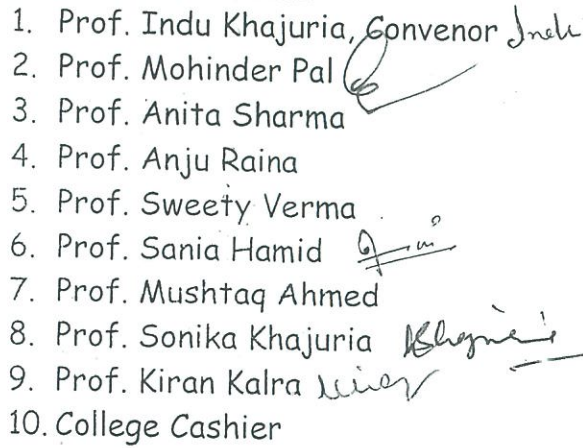 1. Prof. Indu Khajuria, Convenor Indu
2. Prof. Mohinder Pal
3. Prof. Anita Sharma
4. Prof. Anju Raina
5. Prof. Sweety Verma
6. Prof. Sania Hamid
7. Prof. Mushtaq Ahmed
8. Prof. Sonika Khajuria
9. Prof. Kiran Kalra
10. College Cashier